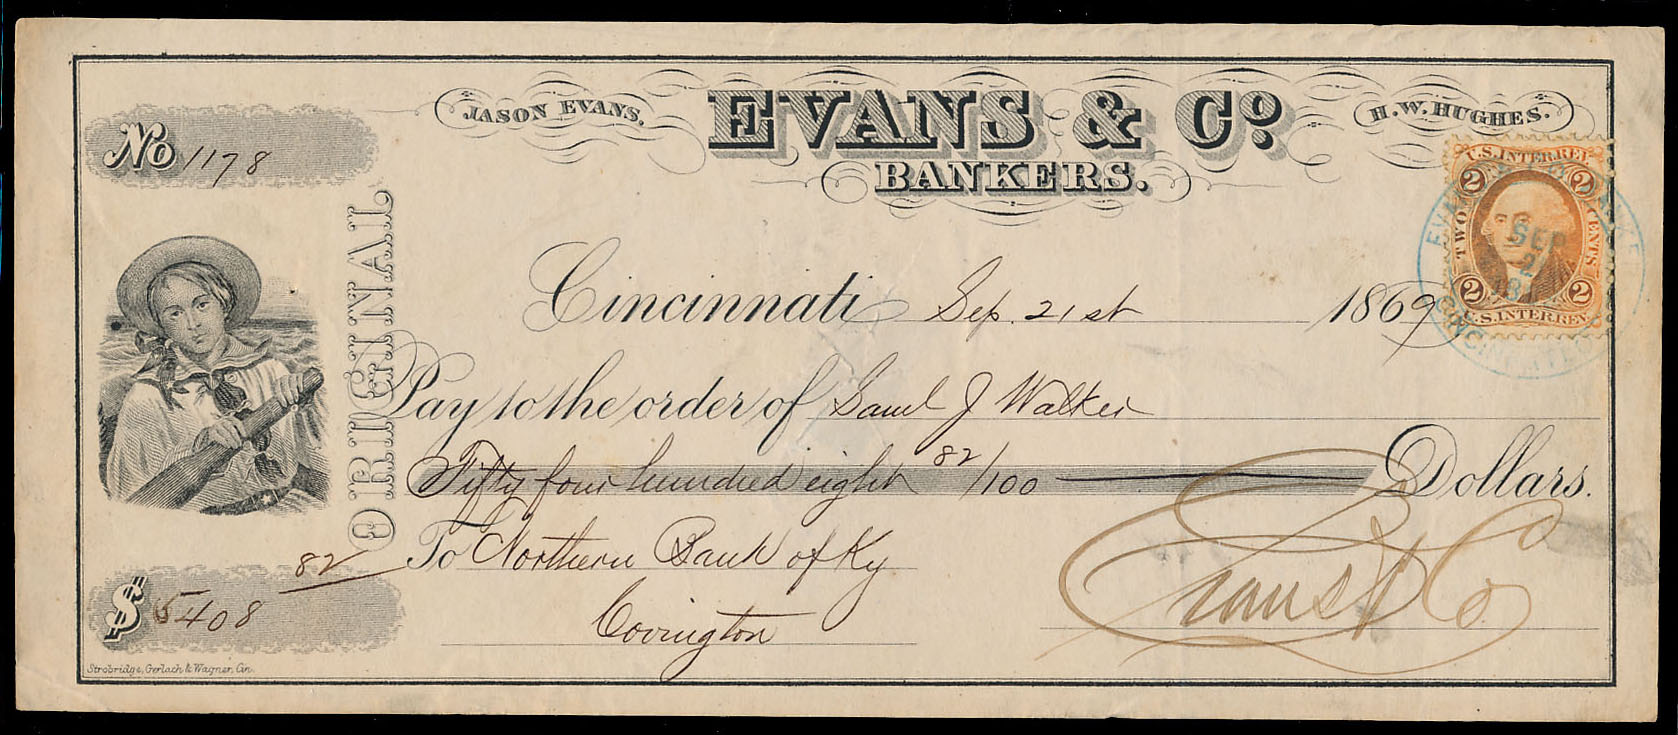 JASON EVANS.
EVANS & Co.
H. W. HUGHES.
BANKERS.
No 1178
ORIGINAL
U.S. INTER. REV.
2 2
TWO CENTS
2 2
U.S. INTER. REV.
SEP
21
CINCINNATI
Cincinnati Sep. 21st 1869
Pay to the order of Saml J Walker
Fifty four hundred eight 82/100 Dollars.
To Northern Bank of Ky
Covington
Evans & Co
$ 5408 82
Strobridge, Gerlach & Wagner, Cin.